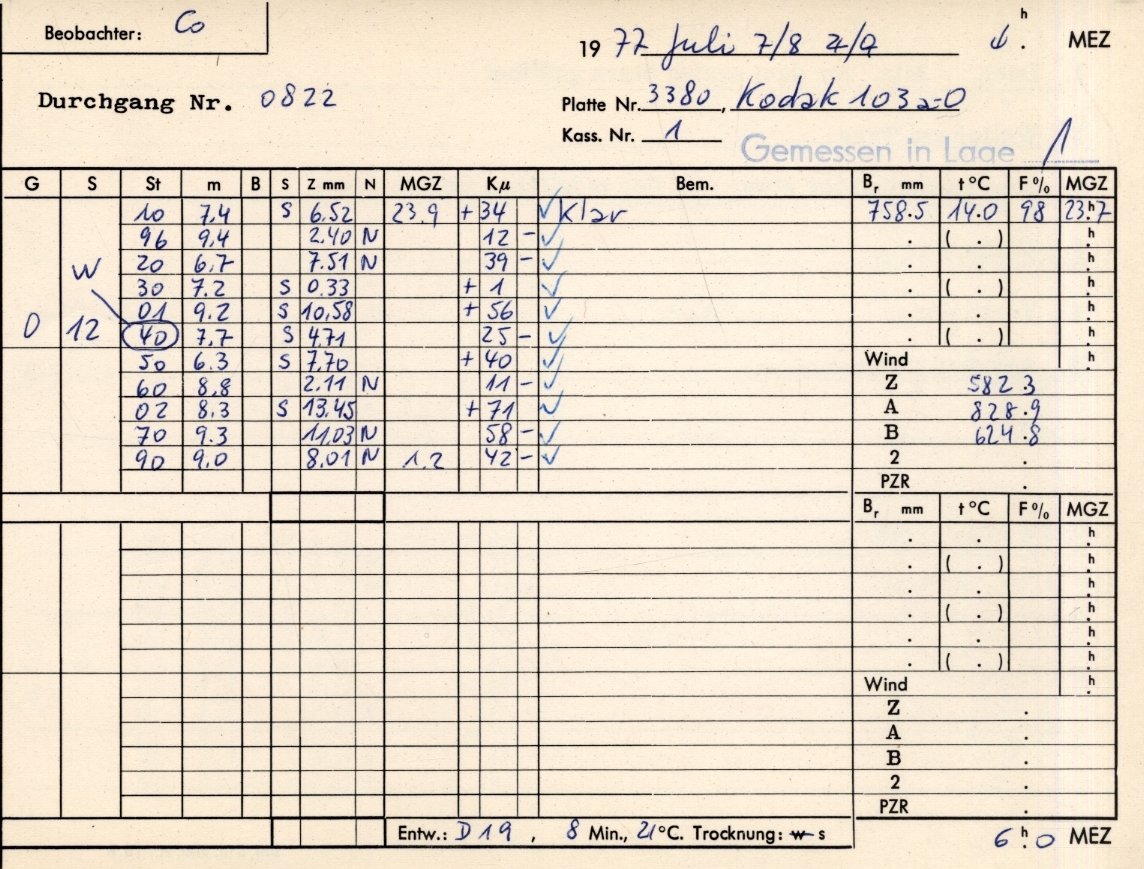 Beobachter: Co
19 77 Juli 7/8 h . MEZ
Durchgang Nr. 0822
Platte Nr. 3380, Kodak 103a-O
Kass. Nr. 1
Gemessen in Lage 1
G S St m B S Z mm N MGZ Kμ Bem. Br mm t °C F % MGZ
10 7,4 S 6,52 23.9 +34 ✓ Klar 758.5 14.0 98 23h.7
96 9,4 2,40 N 12 - ✓ . ( . ) h
W 20 6,7 7.51 N 39 - ✓ . . h
30 7.2 S 0.33 + 1 ✓ . ( . ) h
01 9.2 S 10,58 + 56 ✓ . . h
0 12 40 7,7 S 4,71 25 - ✓ . ( . ) h
50 6.3 S 7,70 + 40 ✓ Wind h
60 8,8 2.11 N 11 - ✓ Z 582.3
02 8,3 S 13,45 + 71 ✓ A 828.9
70 9.3 11,03 N 58 - ✓ B 624.8
90 9,0 8,01 N 1.2 42 - ✓ 2 .
PZR .
Br mm t °C F % MGZ
. . h
. ( . ) h
. . h
. ( . ) h
. . h
. ( . ) h
Wind h
Z .
A .
B .
2 .
PZR .
Entw.: D 19 , 8 Min., 21°C. Trocknung: w s
6 h . 0 MEZ